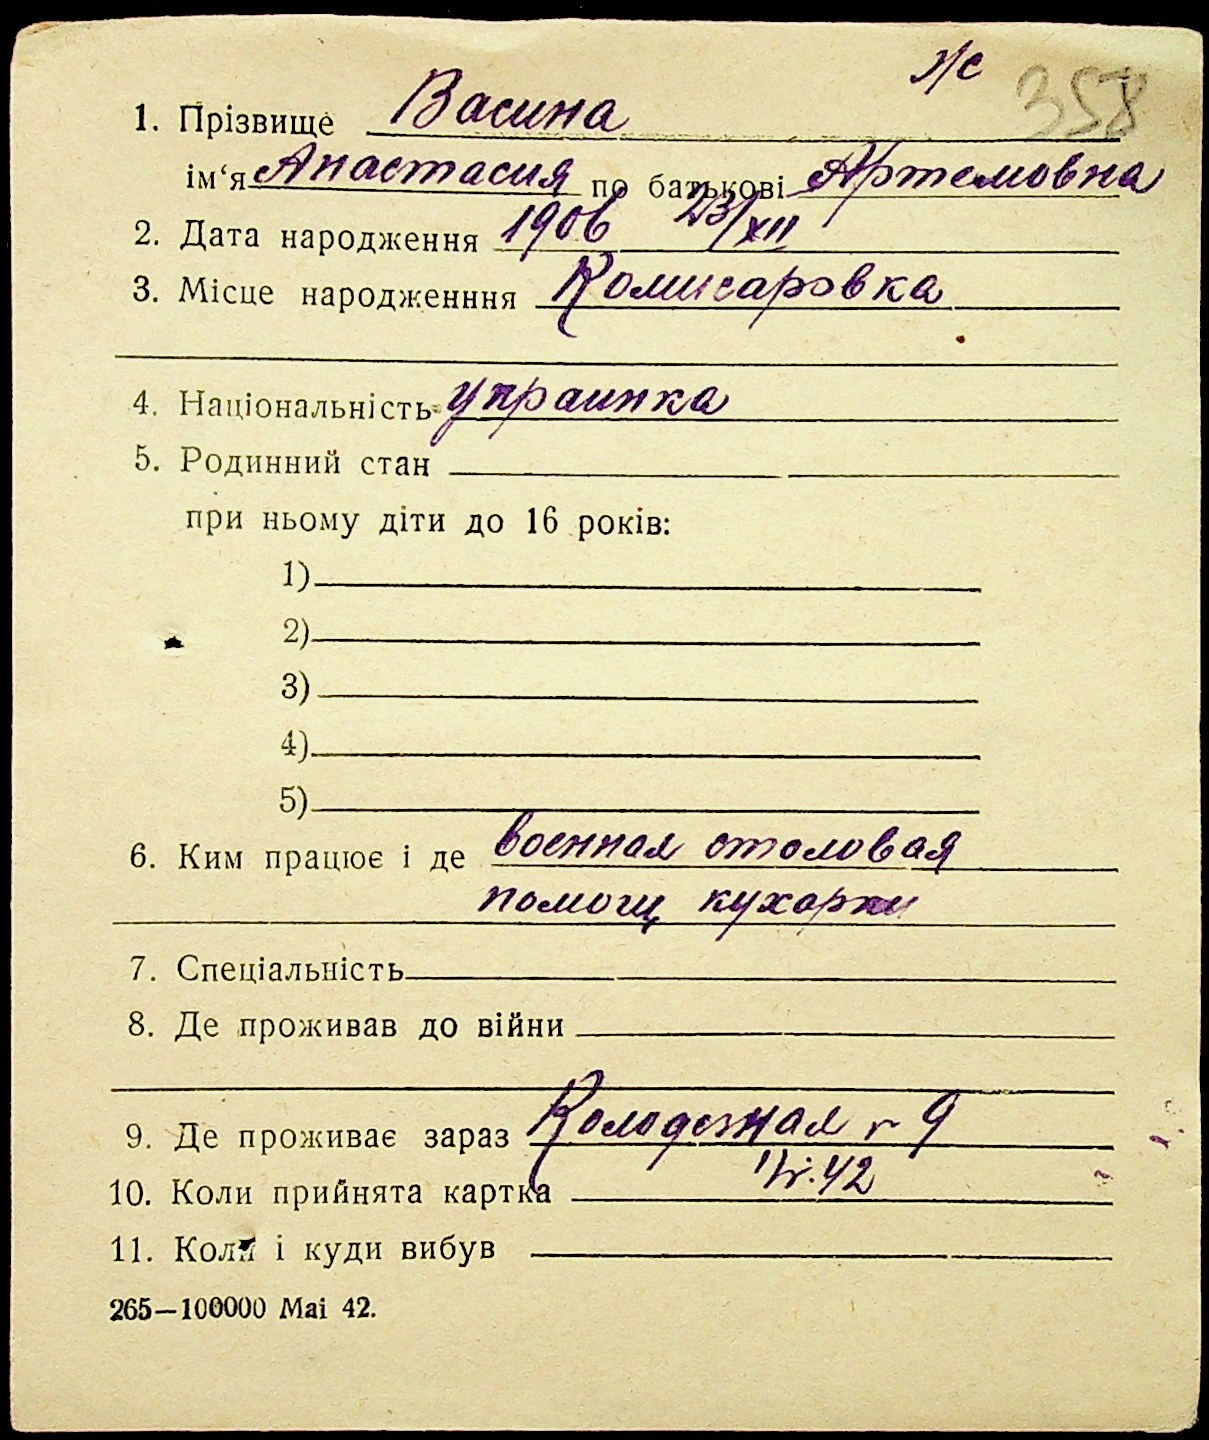 ж/с 358
1. Прізвище Васина
ім‘я Анастасия по батькові Артемовна
2. Дата народження 1906 23/XII
3. Місце народженння Комисаровка
4. Національність украинка
5. Родинний стан
при ньому діти до 16 років:
1)
2)
3)
4)
5)
6. Ким працює і де военная столовая
помощ кухарки
7. Спеціальність
8. Де проживав до війни
9. Де проживає зараз Колодезная 9
10. Коли прийнята картка 42
11. Коли і куди вибув
265—100000 Mai 42.